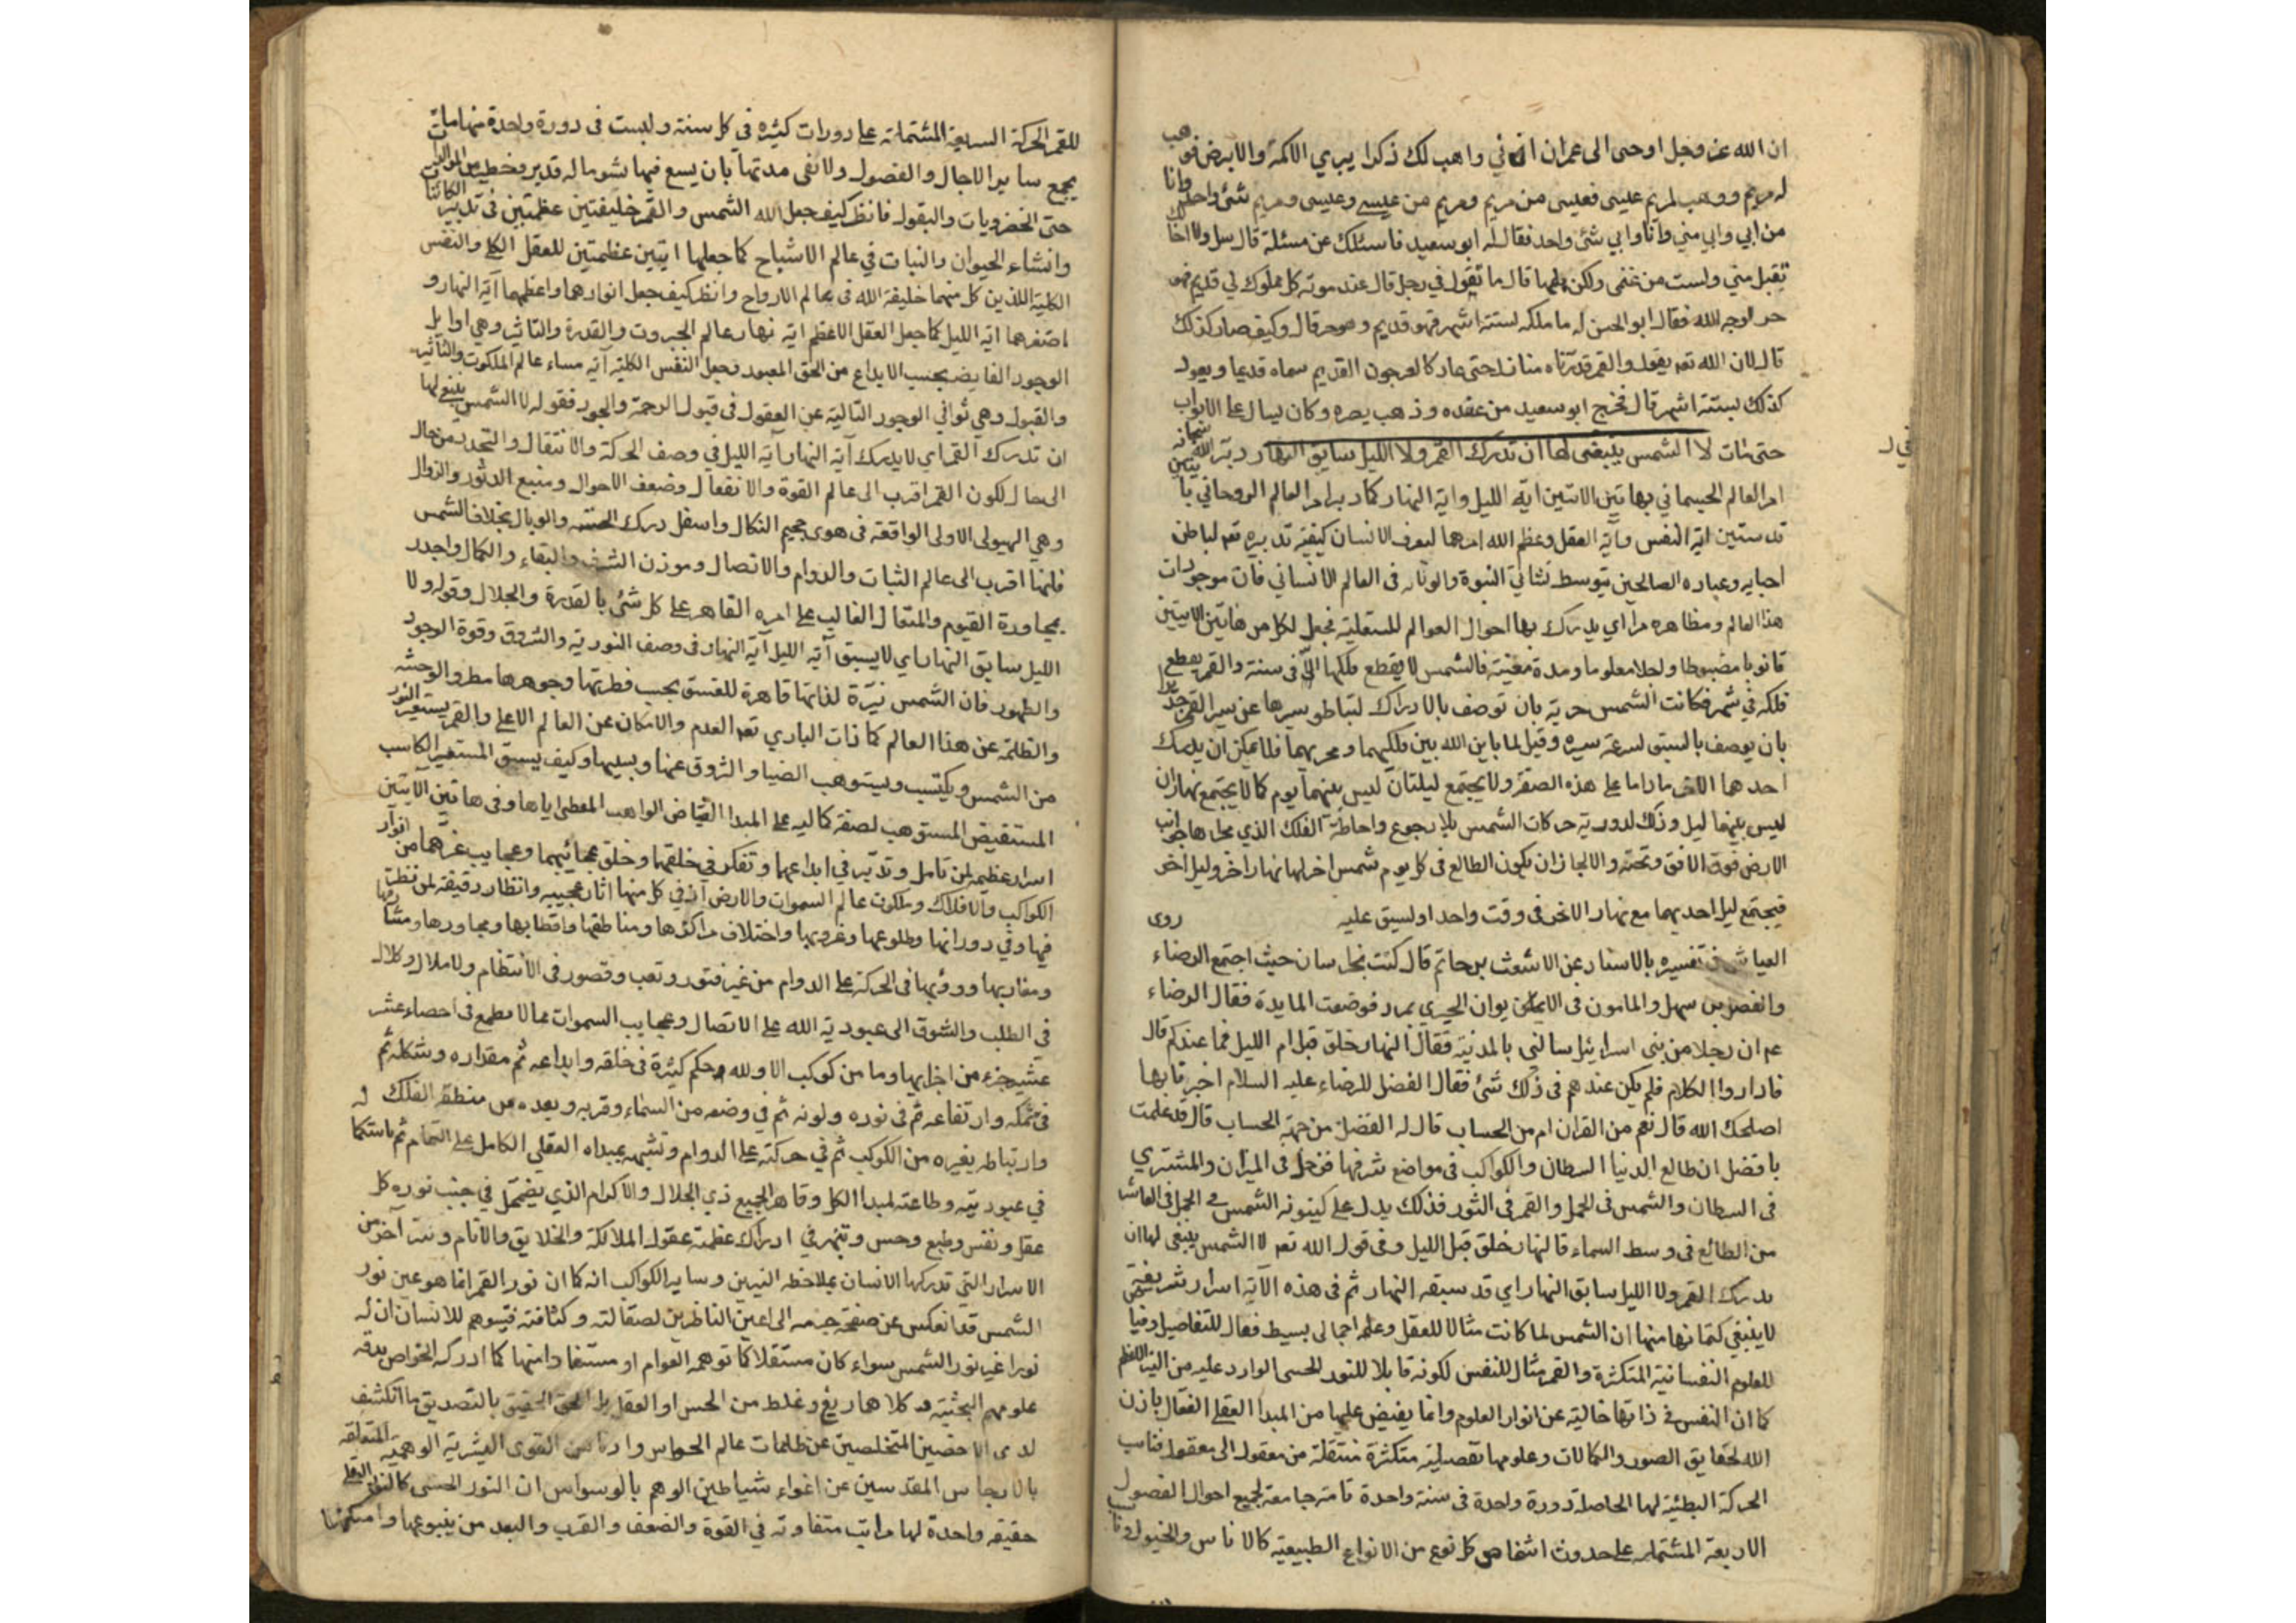 ان الله عز وجل اوحى الى عمران اني واهب لك ذكرا يبري الاكمه والابرص فوهب
له مريم ووهب لمريم عيسى فعيسى من مريم ومريم من عيسى وعيسى ومريم شئ واحد وانا
من ابي وابي مني وانا وابي شئ واحد فقال له ابو سعيد فاسئلك عن مسئلة قال سل ولا اخالك
تقبل مني ولست من غنمى ولكن هلمها قال ما تقول في رجل قال عند موته كل مملوك لي قديم فهو
حر لوجه الله فقال ابو الحسن له ما ملكه لستة اشهر فهو قديم وهو حر قال وكيف صار كذلك
قال لان الله تعم يقول والقمر قدرناه منازل حتى عاد كالعرجون القديم سماه قديما ويعود
كذلك لستة اشهر قال فخرج ابو سعيد من عنده وذهب بصره وكان يسال على الابواب
حتى مات لا الشمس ينبغى لها ان تدرك القمر ولا الليل سابق النهار دبر الله سبحانه
امر العالم الجسماني بهاتين الايتين اية الليل واية النهار كما دبر امر العالم الروحاني بايتين
قدستين اية النفس وآية العقل وعظم الله امرهما ليعرف الانسان كيفية تدبيره تعم لباطن
احبابه وعباده الصالحين بتوسط نشأتي النبوة والولاية فى العالم الانساني فان موجودات
هذا العالم ومظاهره مرااي يدرك بها احوال العوالم المستعلية فجعل لكل من هاتين الايتين
قانونا مضبوطا واجلا معلوما ومدة معينة فالشمس لا يقطع فلكها الا فى سنة والقمر يقطع
فلكه في شهر فكانت الشمس حرية بان توصف بالادراك لتباطو سيرها عن سير القمر وجدير
بان يوصف بالسبق لسرعة سيره وقيل لما باين الله بين فلكيهما ومجريهما فلا يمكن ان يدرك
احدهما الاخر ماداما على هذه الصفة ولا يجتمع ليلتان ليس بينهما يوم كما لا يجتمع نهاران
ليس بينهما ليل وذلك لدورية حركات الشمس بلا رجوع واحاطة الفلك الذي عليها جوانب
الارض فوق الافق وتحته والا لجاز ان يكون الطالع فى كل يوم شمس اخر لها نهار اخر وليل اخر
فيجتمع ليل احديهما مع نهار الاخر فى وقت واحد او لسبق عليه روى
العياشى فى تفسيره بالاسناد عن الاشعث بن حاتم قال كنت بخراسان حيث اجتمع الرضاء
والفضل بن سهل والمامون فى الايوان الحيري بمرو فوضعت المايدة فقال الرضاء
عم ان رجلا من بنى اسرائيل سالنى بالمدنية فقال النهار خلق قبل ام الليل فما عندكم قال
فاداروا الكلام فلم يكن عندهم فى ذلك شئ فقال الفضل للرضاء عليه السلام اخبرنا بها
اصلحك الله قال نعم من القران ام من الحساب قال له الفضل من جهة الحساب قال قد علمت
يا فضل ان طالع الدنيا السرطان والكواكب فى مواضع شرفها فزحل فى الميزان والمشتري
فى السرطان والشمس فى الحمل والقمر فى الثور فذلك يدل على كينونه الشمس في الحمل فى العاشر
من الطالع فى وسط السماء فالنهار خلق قبل الليل وفى قول الله تعم لا الشمس ينبغى لها ان
تدرك القمر ولا الليل سابق النهار اي قد سبقه النهار ثم فى هذه الآية اسرار شريفة
لا ينبغي كتمانها منها ان الشمس لما كانت مثالا للعقل وعلمه اجمالى بسيط فعال للتفاصيل
للعلوم النفسانية المتكثرة والقمر مثال للنفس لكونه قابلا للنور الحسى الوارد عليه من النير الاعظم
كما ان النفس في ذاتها خالية عن انوار العلوم وانما يفيض عليها من المبدا العقلى الفعال باذن
الله لحقايق الصور والكمالات وعلومها تفصيلية متكثرة منتقلة من معقول الى معقول فناسب
الحركة البطيئة لها الحاصلة دورة واحدة فى سنة واحدة تامة جامعة لجميع احوال الفصول
الاربعة المشتملة على حدوث اشخاص كل نوع من الانواع الطبيعية كالاناس والخيول وناسب
للقمر الحركة السريعة المشتملة على دورات كثيرة في كل سنة وليست فى دورة واحدة منها مامة
يجمع ساير الاجال والفصول ولا تفى مدتها بان يسع فيها
حتى الخضرويات والبقول فانظر كيف جعل الله الشمس والقمر خليفتين عظمتين فى تدبير الكائنات
وانشاء الحيوان والنبات في عالم الاشباح كما جعلهما ايتين عظمتين للعقل الكلى والنفس
الكلية اللذين كل منهما خليفة الله فى عالم الارواح وانظر كيف جعل انوارهما واعظمهما آية النهار و
اصغرهما اية الليل كما جعل العقل الاعظم اية نهار عالم الجبروت والقدرة والتاثير وهى اوايل
الوجود الفايض بحسب الابداع من الحق المعبود وجعل النفس الكلية آية مساء عالم الملكوت والتأثير
والقبول وهي ثواني الوجود التالية عن العقول فى قبول الرحمة والجود فقوله لا الشمس ينبغى لها
ان تدرك القمر اي لا يدرك آية النهار آية الليل في وصف الحركة والانتقال والتجدد من حال
الى حال لكون القمر اقرب الى عالم القوة والانفعال وضعف الاحوال ومنبع الدثور والزوال
وهي الهيولى الاولى الواقعة فى هوى جحيم النكال واسفل درك الخسة والوبال بخلاف الشمس
فانها اقرب الى عالم الثبات والدوام والاتصال وموزن الشرف والبقاء والكمال واجدر
بمجاورة القيوم والمتعال الغالب على امره القاهر على كل شئ بالقدرة والجلال وقوله ولا
الليل سابق النهار اي لا يسبق آية الليل آية النهار فى وصف النورية والشروق وقوة الوجود
والظهور فان الشمس نيرة لذاتها قاهرة للغسق بحسب فطرتها وجوهرها مطر والوحشه
والظلمة عن هذا العالم كما ذات الباري تعم العدم والامكان عن العالم الاعلى والقمر يستعير النور
من الشمس ويكتسب ويستوهب الضياء والشروق عنها وكيف يسبق المستعير الكاسب
المستفيض المستوهب لصفة كماليه على المبدا الفياض الواهب المعطى اياها وفى هاتين الآيتين
اسرار عظيمة لمن تامل وتدبر في ابداعهما وتفكر في خلقهما وخلق عجائبهما وعجايب غيرهما من انوار
الكواكب والافلاك وملكوت عالم السموات والارض اذ في كل منها اثار عجيبه وانظار دقيقة لمن نظر
فيها وفي دورانها وطلوعها وغروبها واختلاف مراكزها ومناطقها واقطابها ومحاورها ومشارقها
ومغاربها ودؤبها فى الحركة على الدوام من غير فتور وتعب وقصور فى الانتظام ولا ملال وكلال
في الطلب والشوق الى عبودية الله على الاتصال وعجايب السموات مما لا مطمع فى احصاء عشر
عشير جزء من اجزايها وما من كوكب الا ولله حكم كثيرة فى خلقه وابداعه ثم مقداره وشكله ثم
فى سمكه وارتفاعه ثم فى نوره ولونه ثم في وضعه من السماء وقربه وبعده من منطقة الفلك له
وارتباطه بغيره من الكوكب ثم في حركته على الدوام وتشبهه بمبداه العقلى الكامل على التمام ثم
في عبوديته وطاعته لمبدا الكل وقاهر الجميع ذي الجلال والاكرام الذي يضمحل في جنب نوره كل
عقل ونفس وطبع وحس وتنبهر في ادراك عظمته عقول الملائكة والخلايق والانام وسر آخر من
الاسرار التي تدركها الانسان بملاحظه النيرين وساير الكواكب انه كما ان نور القمر انما هو عين نور
الشمس قد انعكس عن صفحة جرمه الى اعين الناظرين لصقالته وكثافته فيتوهم للانسان ان له
نورا غير نور الشمس سواء كان مستقلا كما توهمه العوام او مستفادا منها كما ادركه الخواص بدقة
علومهم البحثية وكلاهما زيغ وغلط من الحس او العقل بل الحق الحقيق بالتصديق ما انكشف
لدى المتخلصين عن ظلمات عالم الحواس وادناس القوى البشرية الوهمية المتعلقة
بالارجاس المقدسين عن اغواء شياطين الوهم بالوسواس ان النور الحسى كالنور العقلى
حقيقه واحدة لها مراتب متفاوته في القوة والضعف والقرب والبعد من ينبوعها